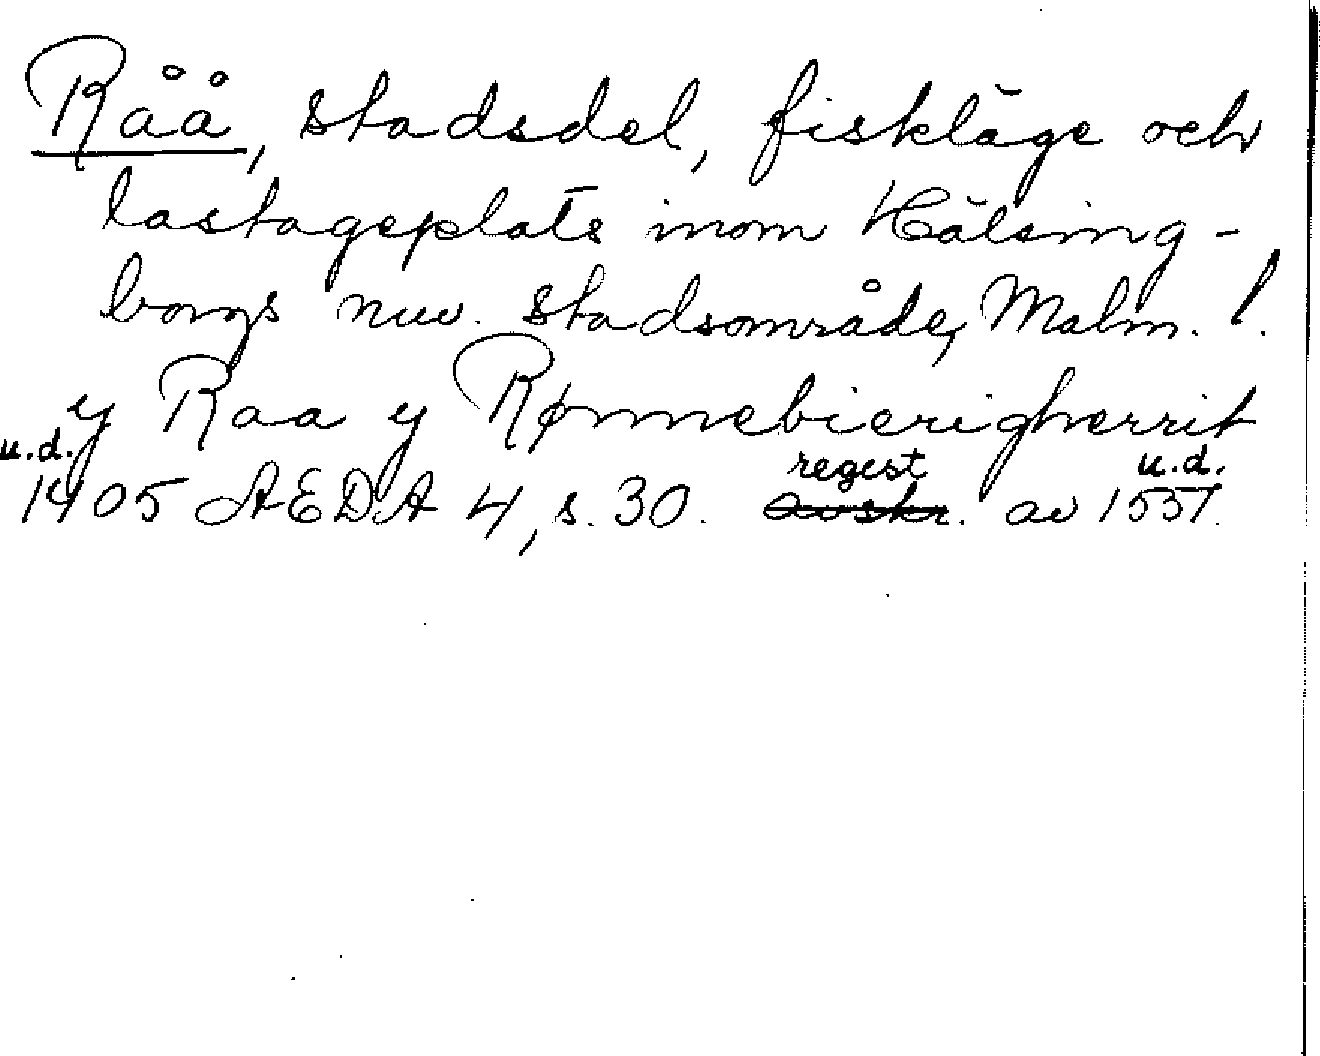 Råå, stadsdel, fiskläge och
lastageplats inom Hälsing-
borgs nuv. stadsområde, Malm. l.
y Raa y Rønnebierigherrit
u.d. 1405 AEDA 4, s. 30. avskr. regest av 1537. u.d.